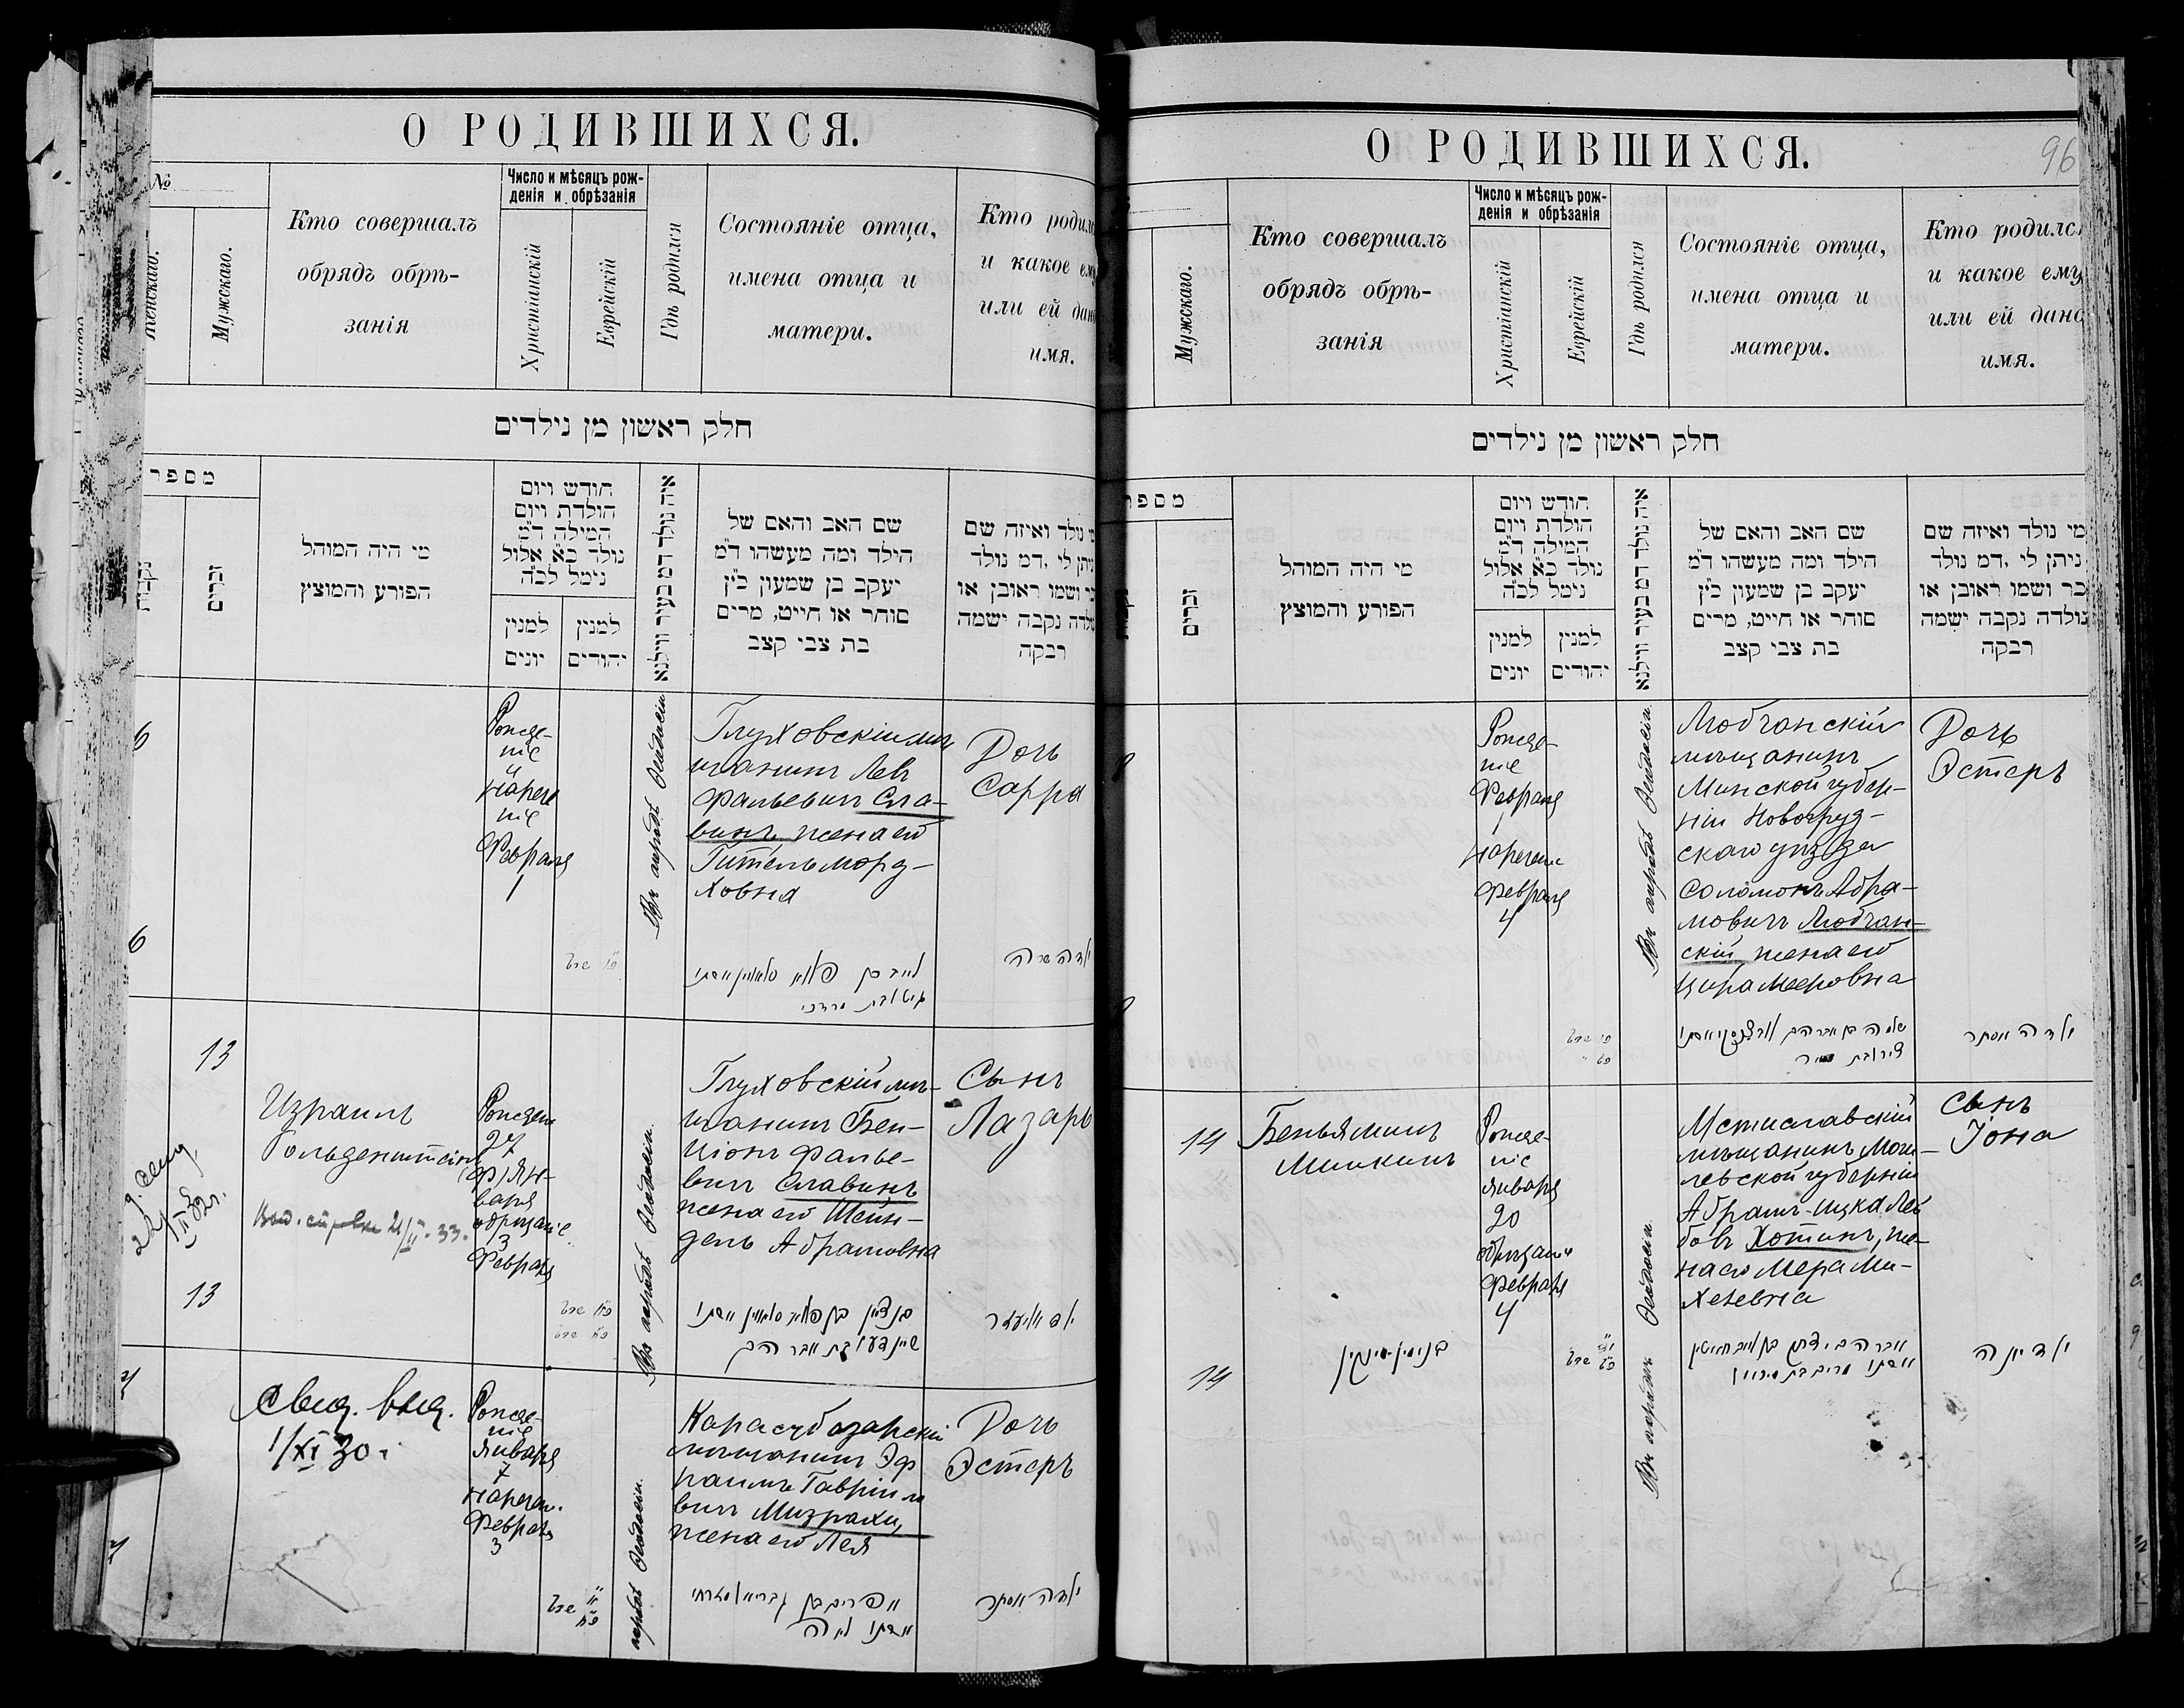 О РОДИВШИХСЯ.
№
Женскаго.
Мужскаго.
Кто совершалъ
обрядъ обрѣ-
занія
Число и мѣсяцъ рож-
денія и обрѣзанія
Христіанскій
Еврейскій
Гдѣ родился
Состояніе отца,
имена отца и
матери.
Кто родил
и какое ему
или ей дан
имя.
חלק ראשון מן נילדים
מספר
נקבות
זכרים
מי היה המוהל
הפורע והמוצץ
חודש ויום
הולדת ויום
המילה ד"מ
נולד כ"א אלול
נימל לכ"ה
למנין
יונים
למנין
יהודים
איה נולד דמ בעיר ווילנא
שם האב והאם של
הילד ומה מעשהו ד"מ
יעקב בן שמעון כ"ץ
סוחר או חייט, מרים
בת צבי קצב
י נולד ואיזה שם
ניתן לי, דמ נולד
ושמו ראובן או
נקבה ישמה
רבקה
6
Рожде-
ніе
и
нарече
ніе
Февраля
1
Въ городѣ Ѳеодосіи
Глуховскій мѣ
щанинъ Лев
Фальевич Сла-
винъ жена его
Гительморд-
ховна
Дочь
Сарра
6
ילדה שרה
13
Израиль
Гольденштейн
Рожден
27
Ян-
варя
обрѣзаніе
3
Февраля
Въ городѣ Ѳеодосіи.
Глуховскій мѣ-
щанинъ Бен-
ціонъ Фалье-
вич Славинъ
жена его Шейн-
дель Абрамовна
Сынъ
Лазарь
21/II-33.
13
Свид. выд.
1/XI 30 г.
Рожде-
ніе
Января
7
Наречен.
Февраля
3
городѣ Ѳеодосіи.
Карасубазарскій
мѣщанинъ Эф
раимъ Гавріило
вич Мизрахи,
жена его Лея
Дочь
Эстеръ
ילדה אסתר
О РОДИВШИХСЯ.
96
Мужскаго.
Кто совершалъ
обрядъ обрѣ-
занія
Число и мѣсяцъ рож-
денія и обрѣзанія
Христіанскій
Еврейскій
Гдѣ родился
Состояніе отца,
имена отца и
матери.
Кто родилс
и какое ему
или ей дано
имя.
חלק ראשון מן נילדים
מספר
זכרים
מי היה המוהל
הפורע והמוצץ
חודש ויום
הולדת ויום
המילה ד"מ
נולד כ"א אלול
נימל לכ"ה
למנין
יונים
למנין
יהודים
איה נולד דמ בעיר ווילנא
שם האב והאם של
הילד ומה מעשהו ד"מ
יעקב בן שמעון כ"ץ
סוחר או חייט, מרים
בת צבי קצב
מי נולד ואיזה שם
ניתן לי, דמ נולד
בר ושמו ראובן או
נולדה נקבה ישמה
רבקה
Рожде-
ніе
Февраля
1
наречен
Февраля
4
Въ городѣ Ѳеодосіи.
Любчанскій
мѣщанинъ
Минской губер-
ніи Новогруд-
скаго уѣзда
Соломонъ Абра-
мовичъ Любчан-
скій жена его
Цира Мееровна
Дочь
Эстеръ
ילדה אסתר
14
Беньяминъ
Минкинъ
Рожде-
ніе
Января
20
обрѣзаніи
Февраля
4
Въ городѣ Ѳеодосіи.
Мстиславскій
мѣщанинъ Моги-
левской губерніи
Абрамъ-Ицка Лей
бовъ Хотинъ, же-
на его Мера Ми-
Хелевна
Сынъ
Іона
14
בנימין מינקין
ילד יונה